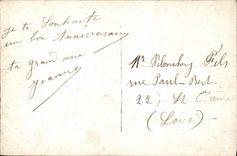 je te souhaite
un bon Anniversaire
ta grand mère
Jeanne
Mr Fils
rue Paul-Bert
22, St Etienne
(Loire)